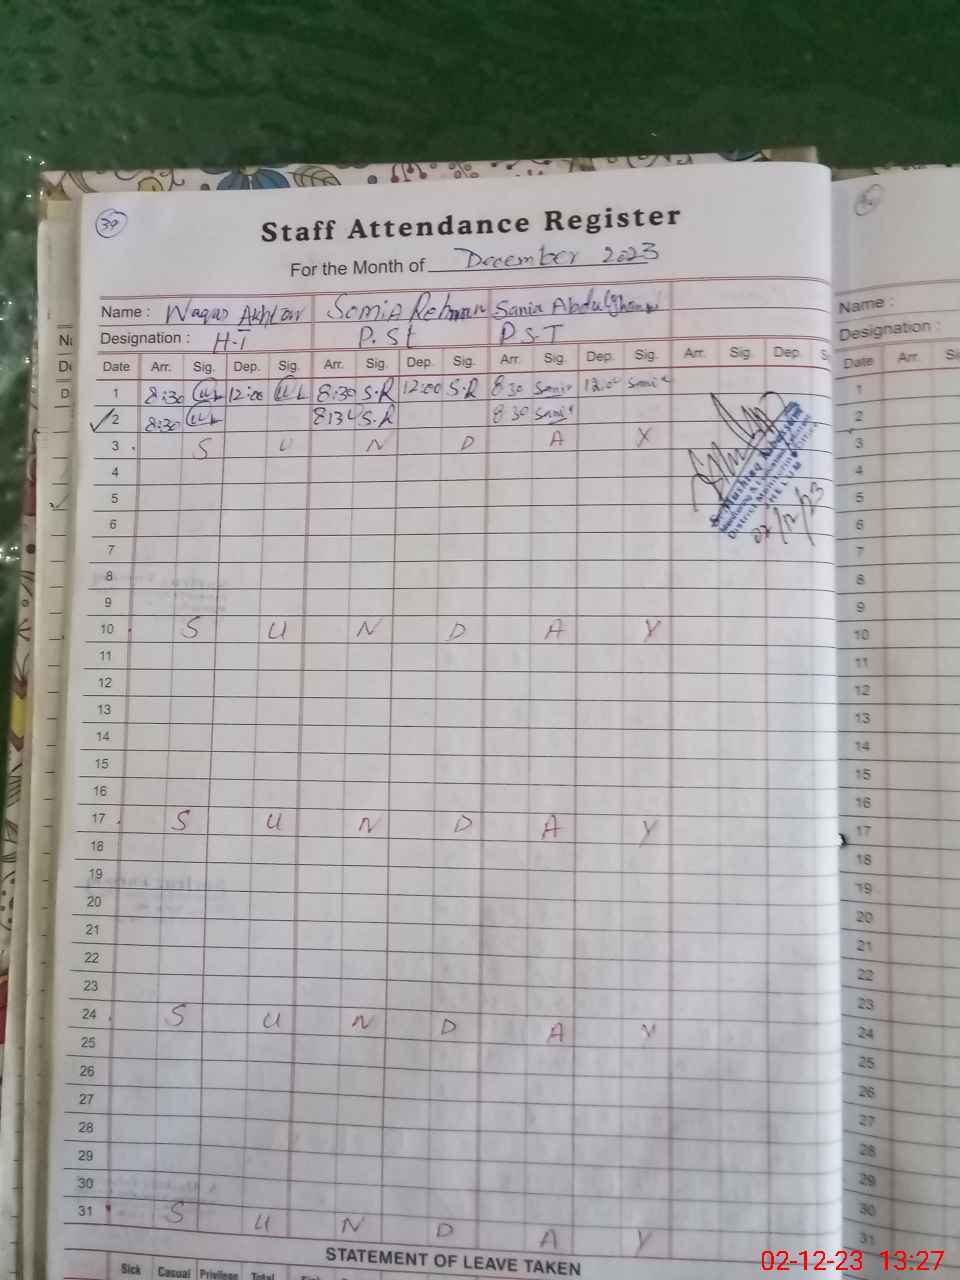 39
Staff Attendance Register
For the Month of December 2023
Name : Waqas Akhtar Somia Rehman Sania Abdulghani
Designation : H-T P.St P.S.T
Date Arr. Sig. Dep. Sig. Arr. Sig. Dep. Sig. Arr. Sig. Dep. Sig. Arr. Sig. Dep. S
1 8:30 12:00 8:30 S.R 12:00 S.R 8 30 Sania 12:00 Sania
2 8:30 8:30 S.R 8 30 Sania
3 S U N D A Y
4
5
6
7
8
9
10 S U N D A Y
11
12
13
14
15
16
17 S U N D A Y
18
19
20
21
22
23
24 S U N D A Y
25
26
27
28
29
30
31 S U N D A Y
JHELUM
02/12/23
STATEMENT OF LEAVE TAKEN
Sick Casual Privilege Total
Name :
Designation :
Date Arr. Si
1
2
3
4
5
6
7
8
9
10
11
12
13
14
15
16
17
18
19
20
21
22
23
24
25
26
27
28
29
30
31
02-12-23 13:27